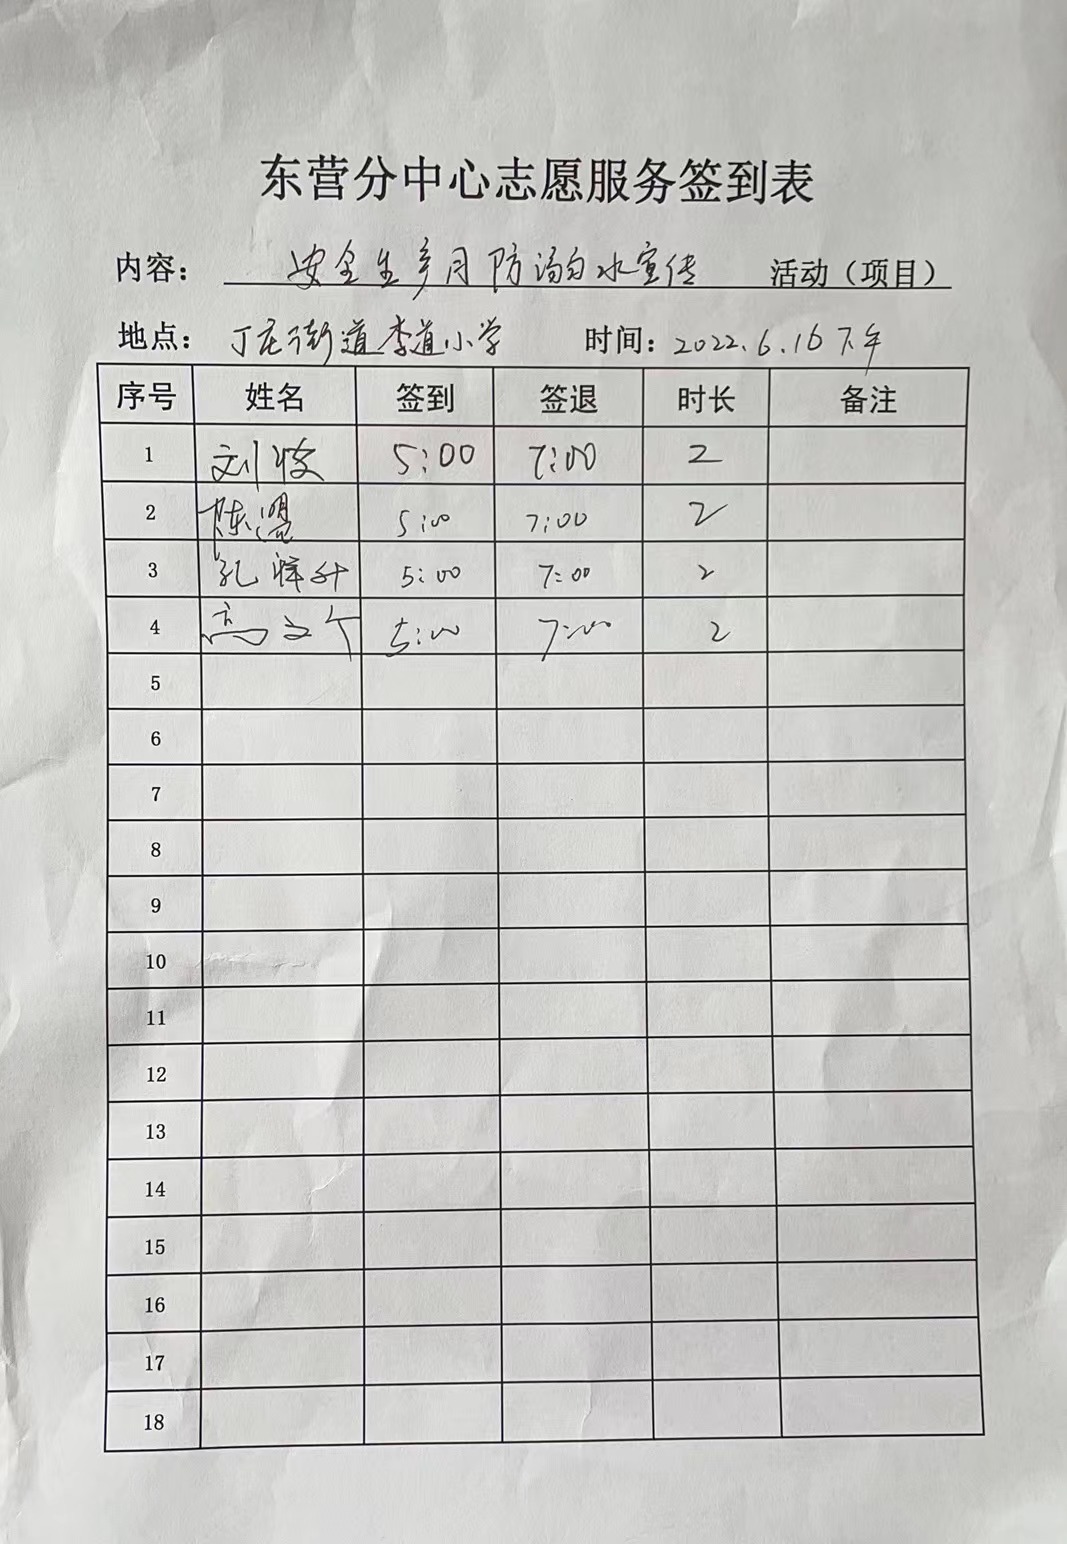 东营分中心志愿服务签到表
内容： 安全生产月防溺水宣传 活动（项目）
地点： 丁庄街道李道小学 时间：2022.6.16下午
序号 姓名 签到 签退 时长 备注
1 刘 5:00 7:00 2
2 陈 5:00 7:00 2
3 孔祥 5:00 7:00 2
4 高文 5:00 7:00 2
5
6
7
8
9
10
11
12
13
14
15
16
17
18